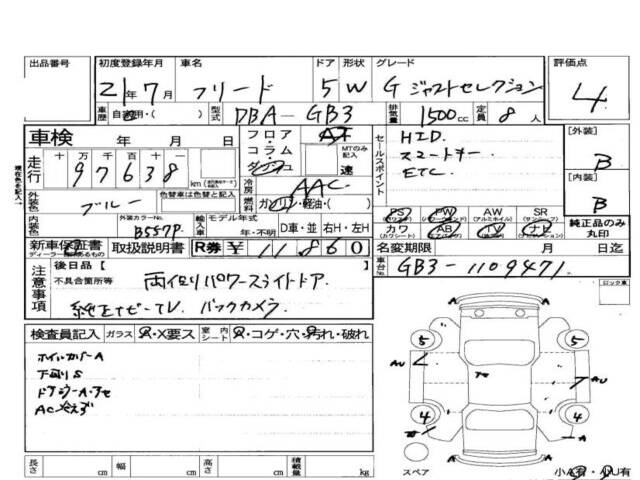 出品番号 初度登録年月 車名 ドア 形状 グレード 評価点
21年7月 フリード 5 W G ジャストセレクション 4
車歴 自家用・( ) 型式 DBA-GB3 排気量 1500cc 定員 8人
車検 年 月 日 フロア・コラム・ダッシュ AT セールスポイント HID. [外装] B
スマートキー
走行 十万千百十一 97638 km MTのみ記入 速 ETC [内装] B
外装色 ブルー 色替車は色替と記入 冷房 AAC 燃料 ガソリン・軽油・( ) PS PW AW SR
内装色 外装カラーNo. B557P 輸入車 モデル年式 年・不明 D車・並 右H・左H カワ AB TV ナビ 純正品のみ丸印
新車保証書 ディーラー印のあるもの 取扱説明書 R券 ¥11860 名変期限 月 日迄
注意事項 後日品[ ] 車台No. GB3-1109471 ロック車
不具合箇所等 両側パワースライドドア
純正ナビーTV. バックカメラ
検査員記入 ガラス A・X要ス 室内シート A・コゲ・穴・汚れ・破れ
ホイルカバーA
下廻りS
AU AU
5 5
4 4
A A A A
長さ cm 幅 cm 高さ cm 積載量 kg スペア 小A有・小U有